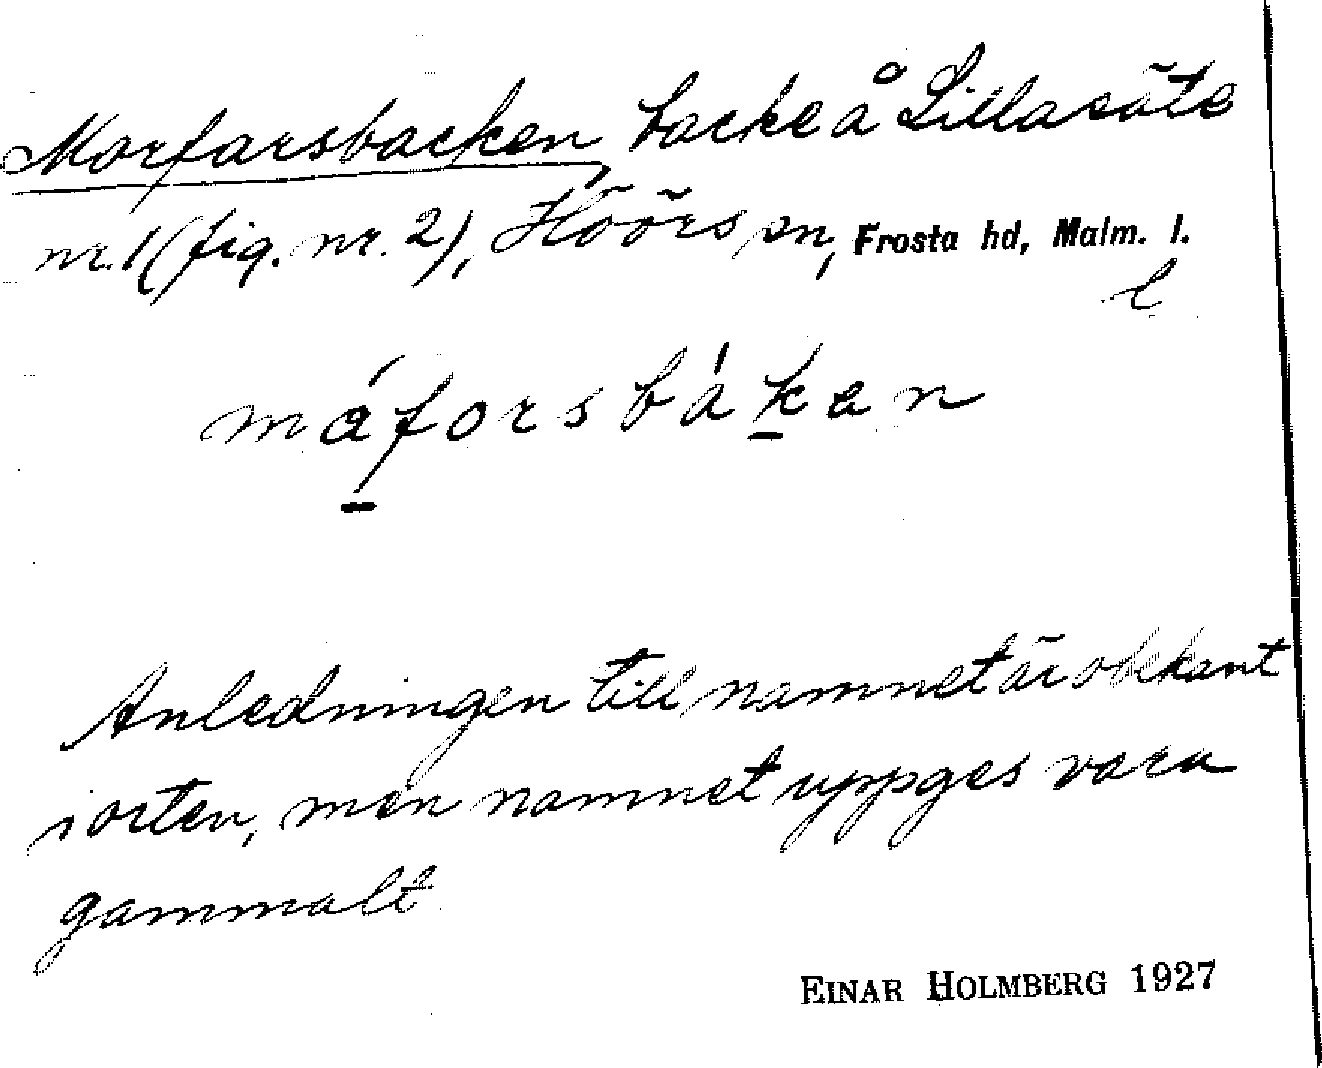 Morfarsbacken, backe å Lillasäte
nr. 1 (fig. nr. 2), Höörs sn, Frosta hd, Malm. l.
l
máforsbáken
Anledningen till namnet är obekant
i orten, men namnet uppges vara
gammalt
EINAR HOLMBERG 1927